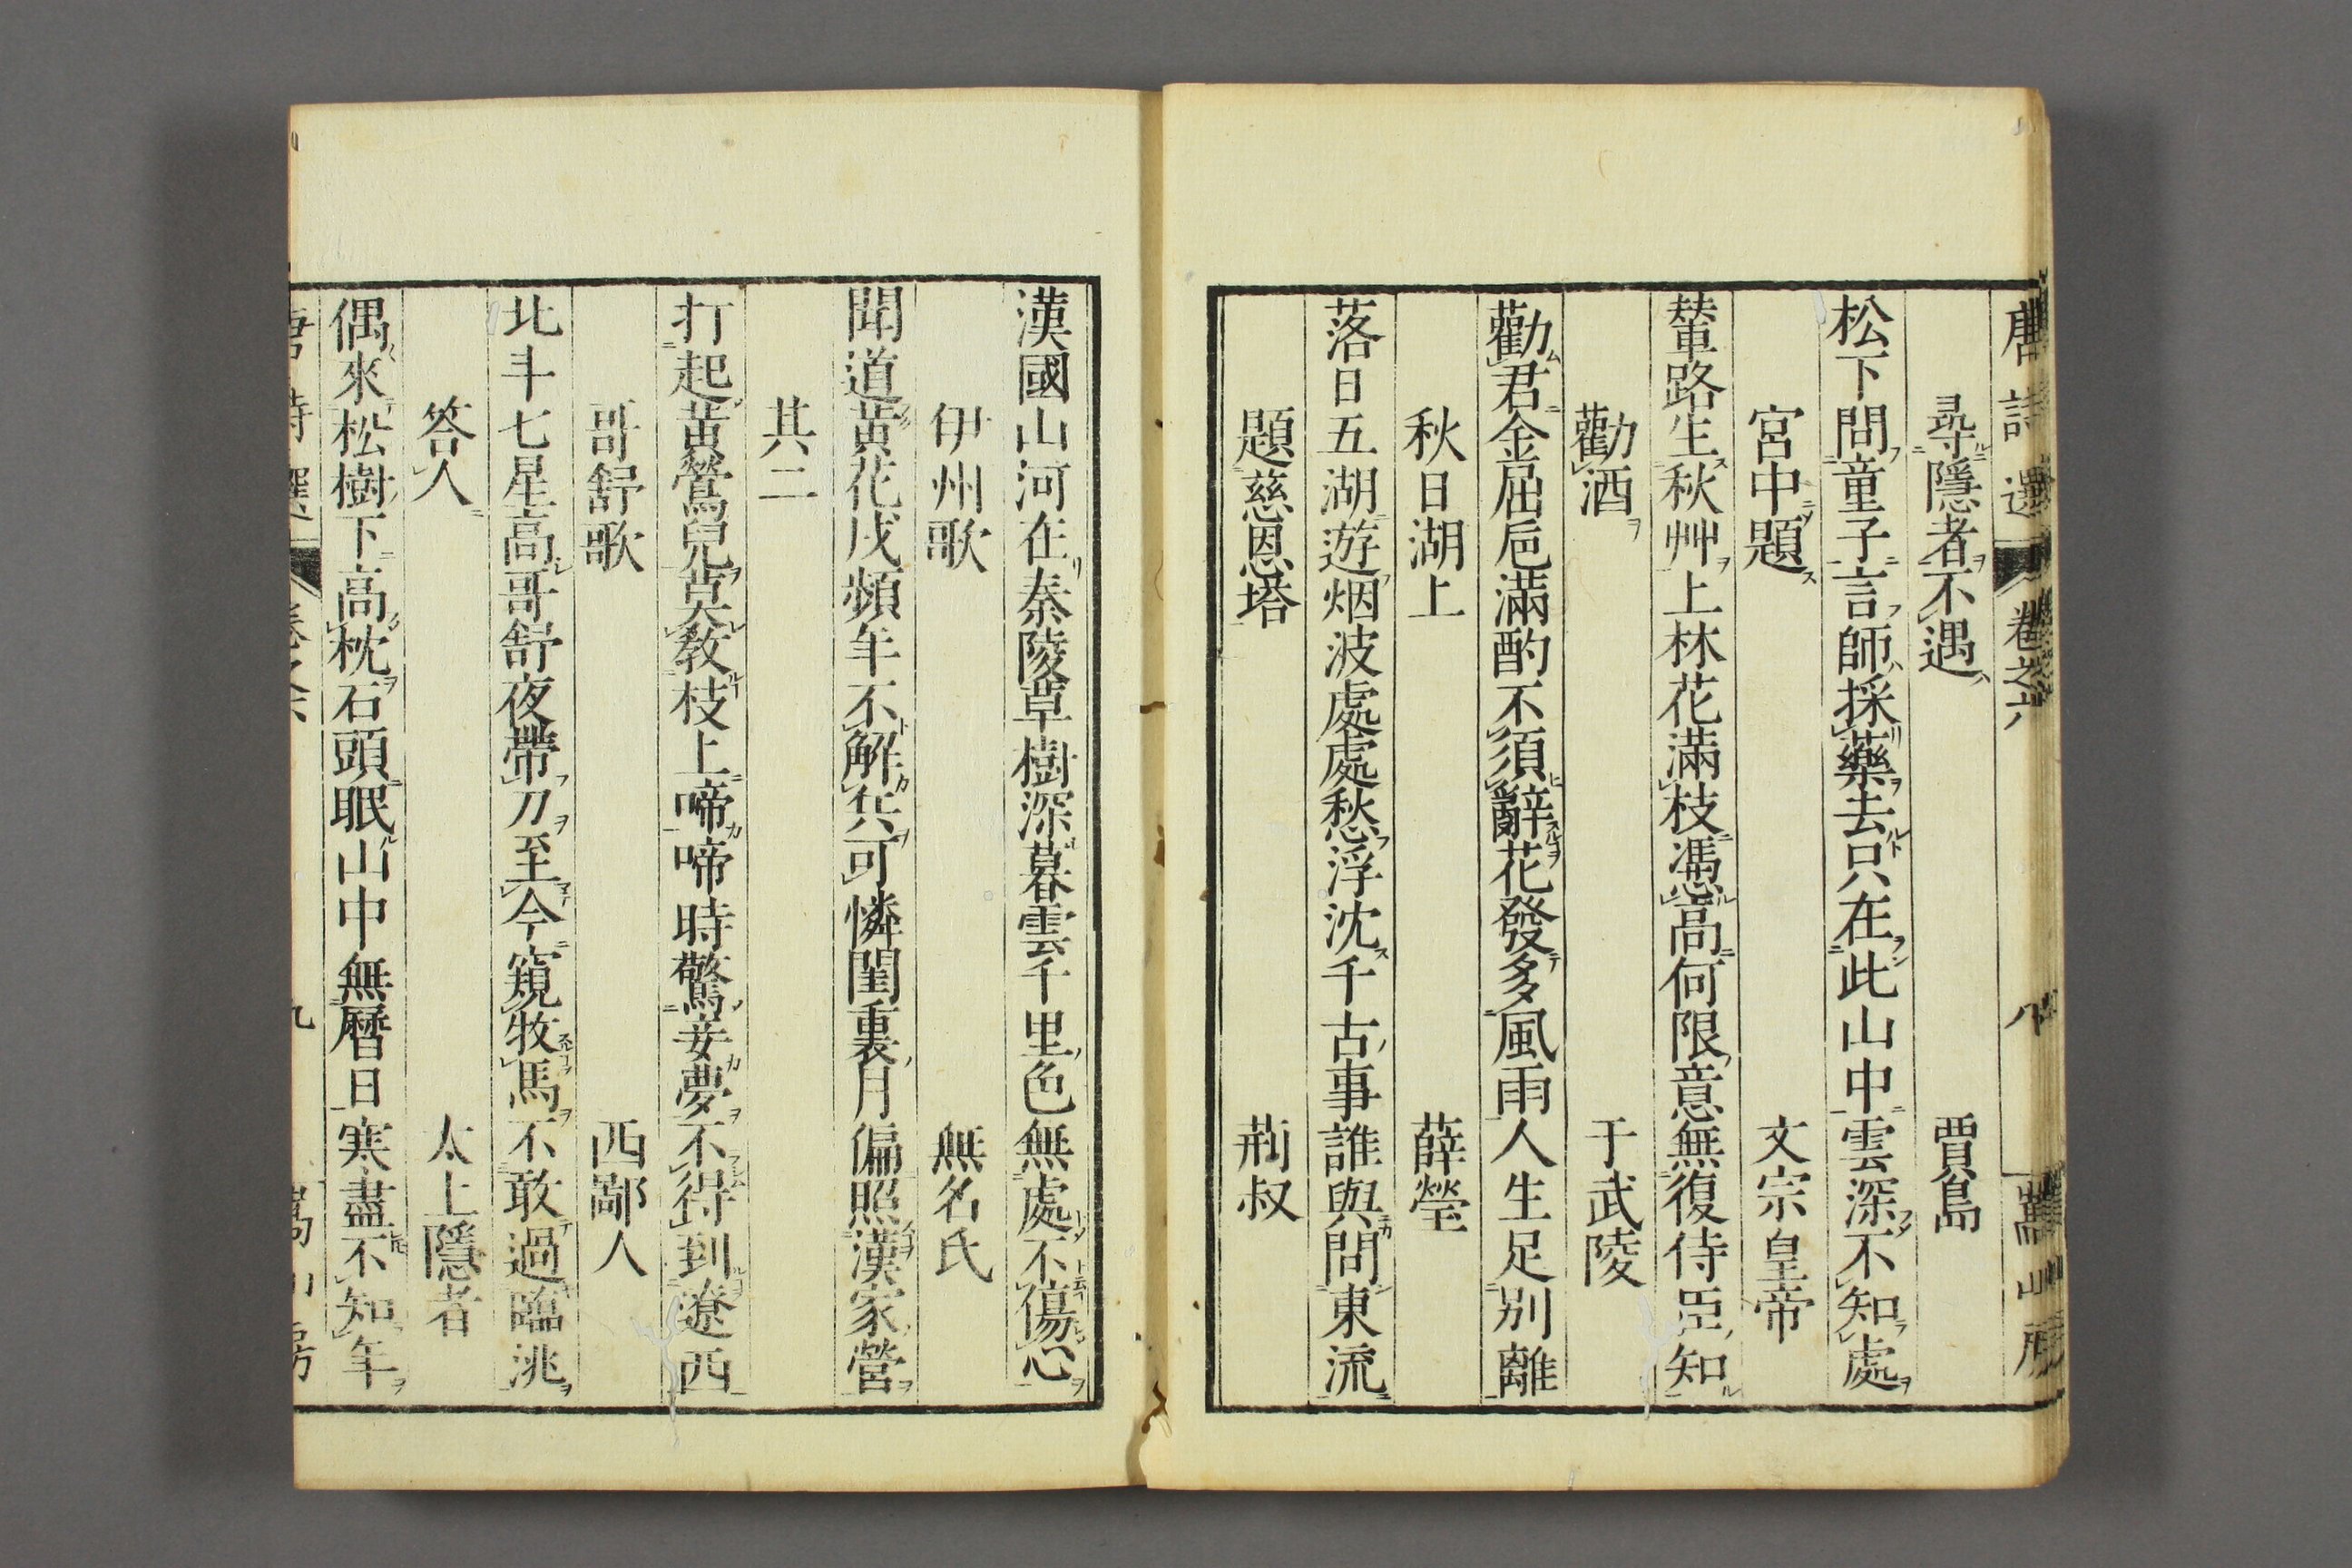 唐詩選 卷之六 八 嵩山房
尋隱者不遇 賈島
松下問童子言師採藥去只在此山中雲深不知處
宮中題 文宗皇帝
輦路生秋艸上林花滿枝憑高何限意無復侍臣知
勸酒 于武陵
勸君金屈巵滿酌不須辭花發多風雨人生足別離
秋日湖上 薛瑩
落日五湖遊烟波處處愁浮沈千古事誰與問東流
題慈恩塔 荊叔
漢國山河在秦陵草樹深暮雲千里色無處不傷心
伊州歌 無名氏
聞道黃花戍頻年不解兵可憐閨裏月偏照漢家營
其二
打起黃鶯兒莫教枝上啼啼時驚妾夢不得到遼西
哥舒歌 西鄙人
北斗七星高哥舒夜帶刀至今窺牧馬不敢過臨洮
答人 太上隱者
偶來松樹下高枕石頭眠山中無曆日寒盡不知年
唐詩選 卷之六 九 嵩山房